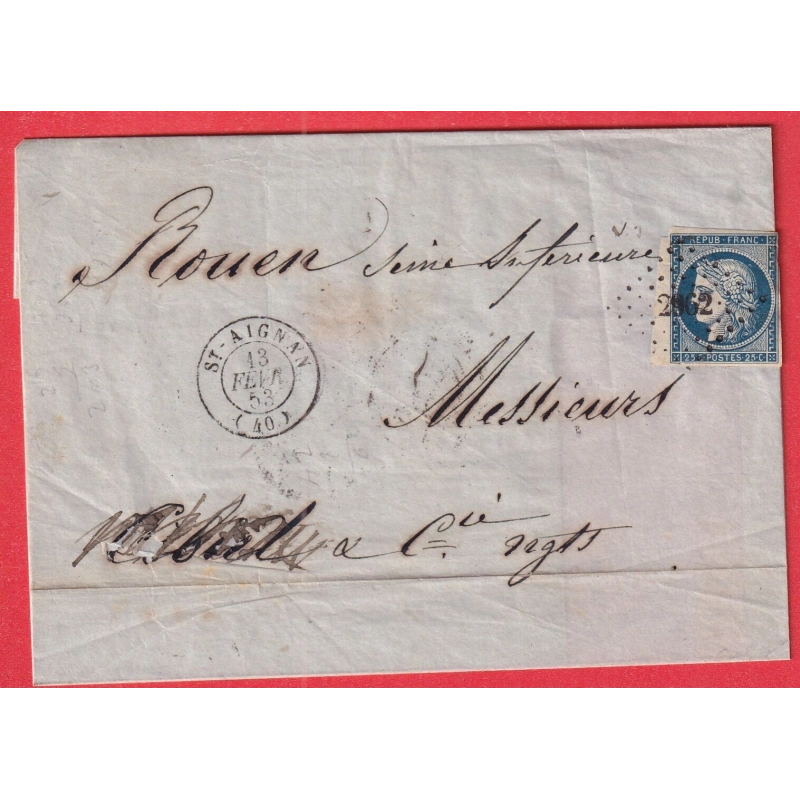 Rouen Seine Inferieure
REPUB·FRANC·
2962
25·C·POSTES·25·C·
ST-AIGNAN
13
FEVR
53
(40)
Messieurs
& Cie ngts